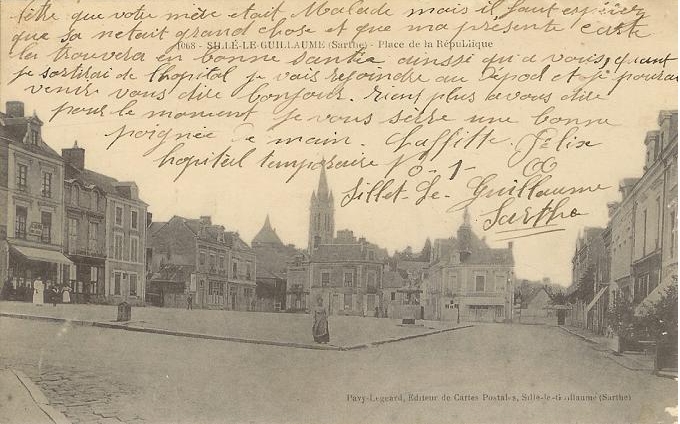 être que votre mère etait Malade mais il faut espérer
que sa netait grand chose et que ma présente carte
1068 - SILLÉ-LE-GUILLAUME (Sarthe) - Place de la République
la trouvera en bonne santie ainssi qu'a vous, quant
je sortirai de l'hopital je vais rejoindre au depod et si je pourai
venir vous dire bonjour. rient plus a vous dire
pour le moment je vous serre une bonne
poignée e main. Laffitte Félix
hopital temporaire N° 1
Sillet-Le-Guillaume
Sartha
Pavy-Legeard, Editeur de Cartes Postales, Sillé-le-Guillaume (Sarthe)